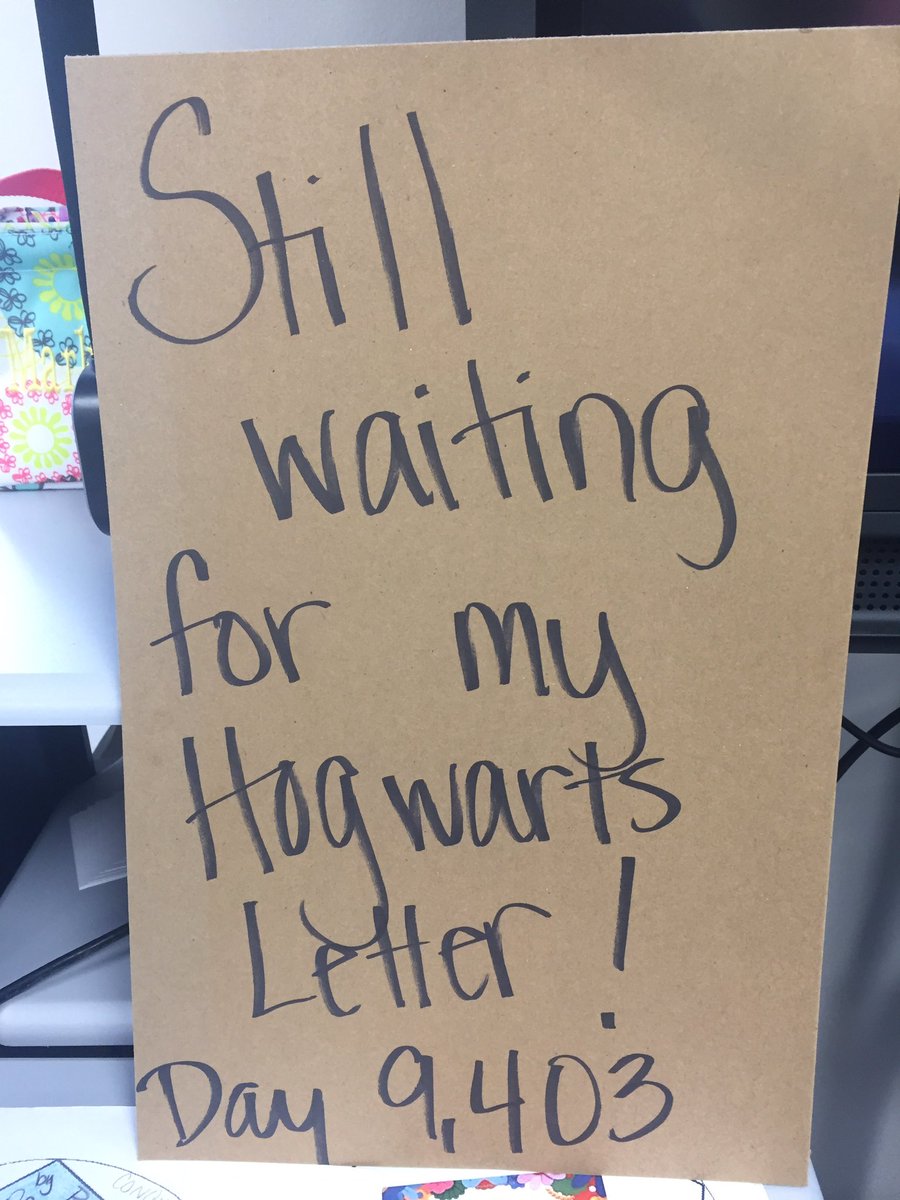 Still
waiting
for my
Hogwarts
Letter!
Day 9,403
by